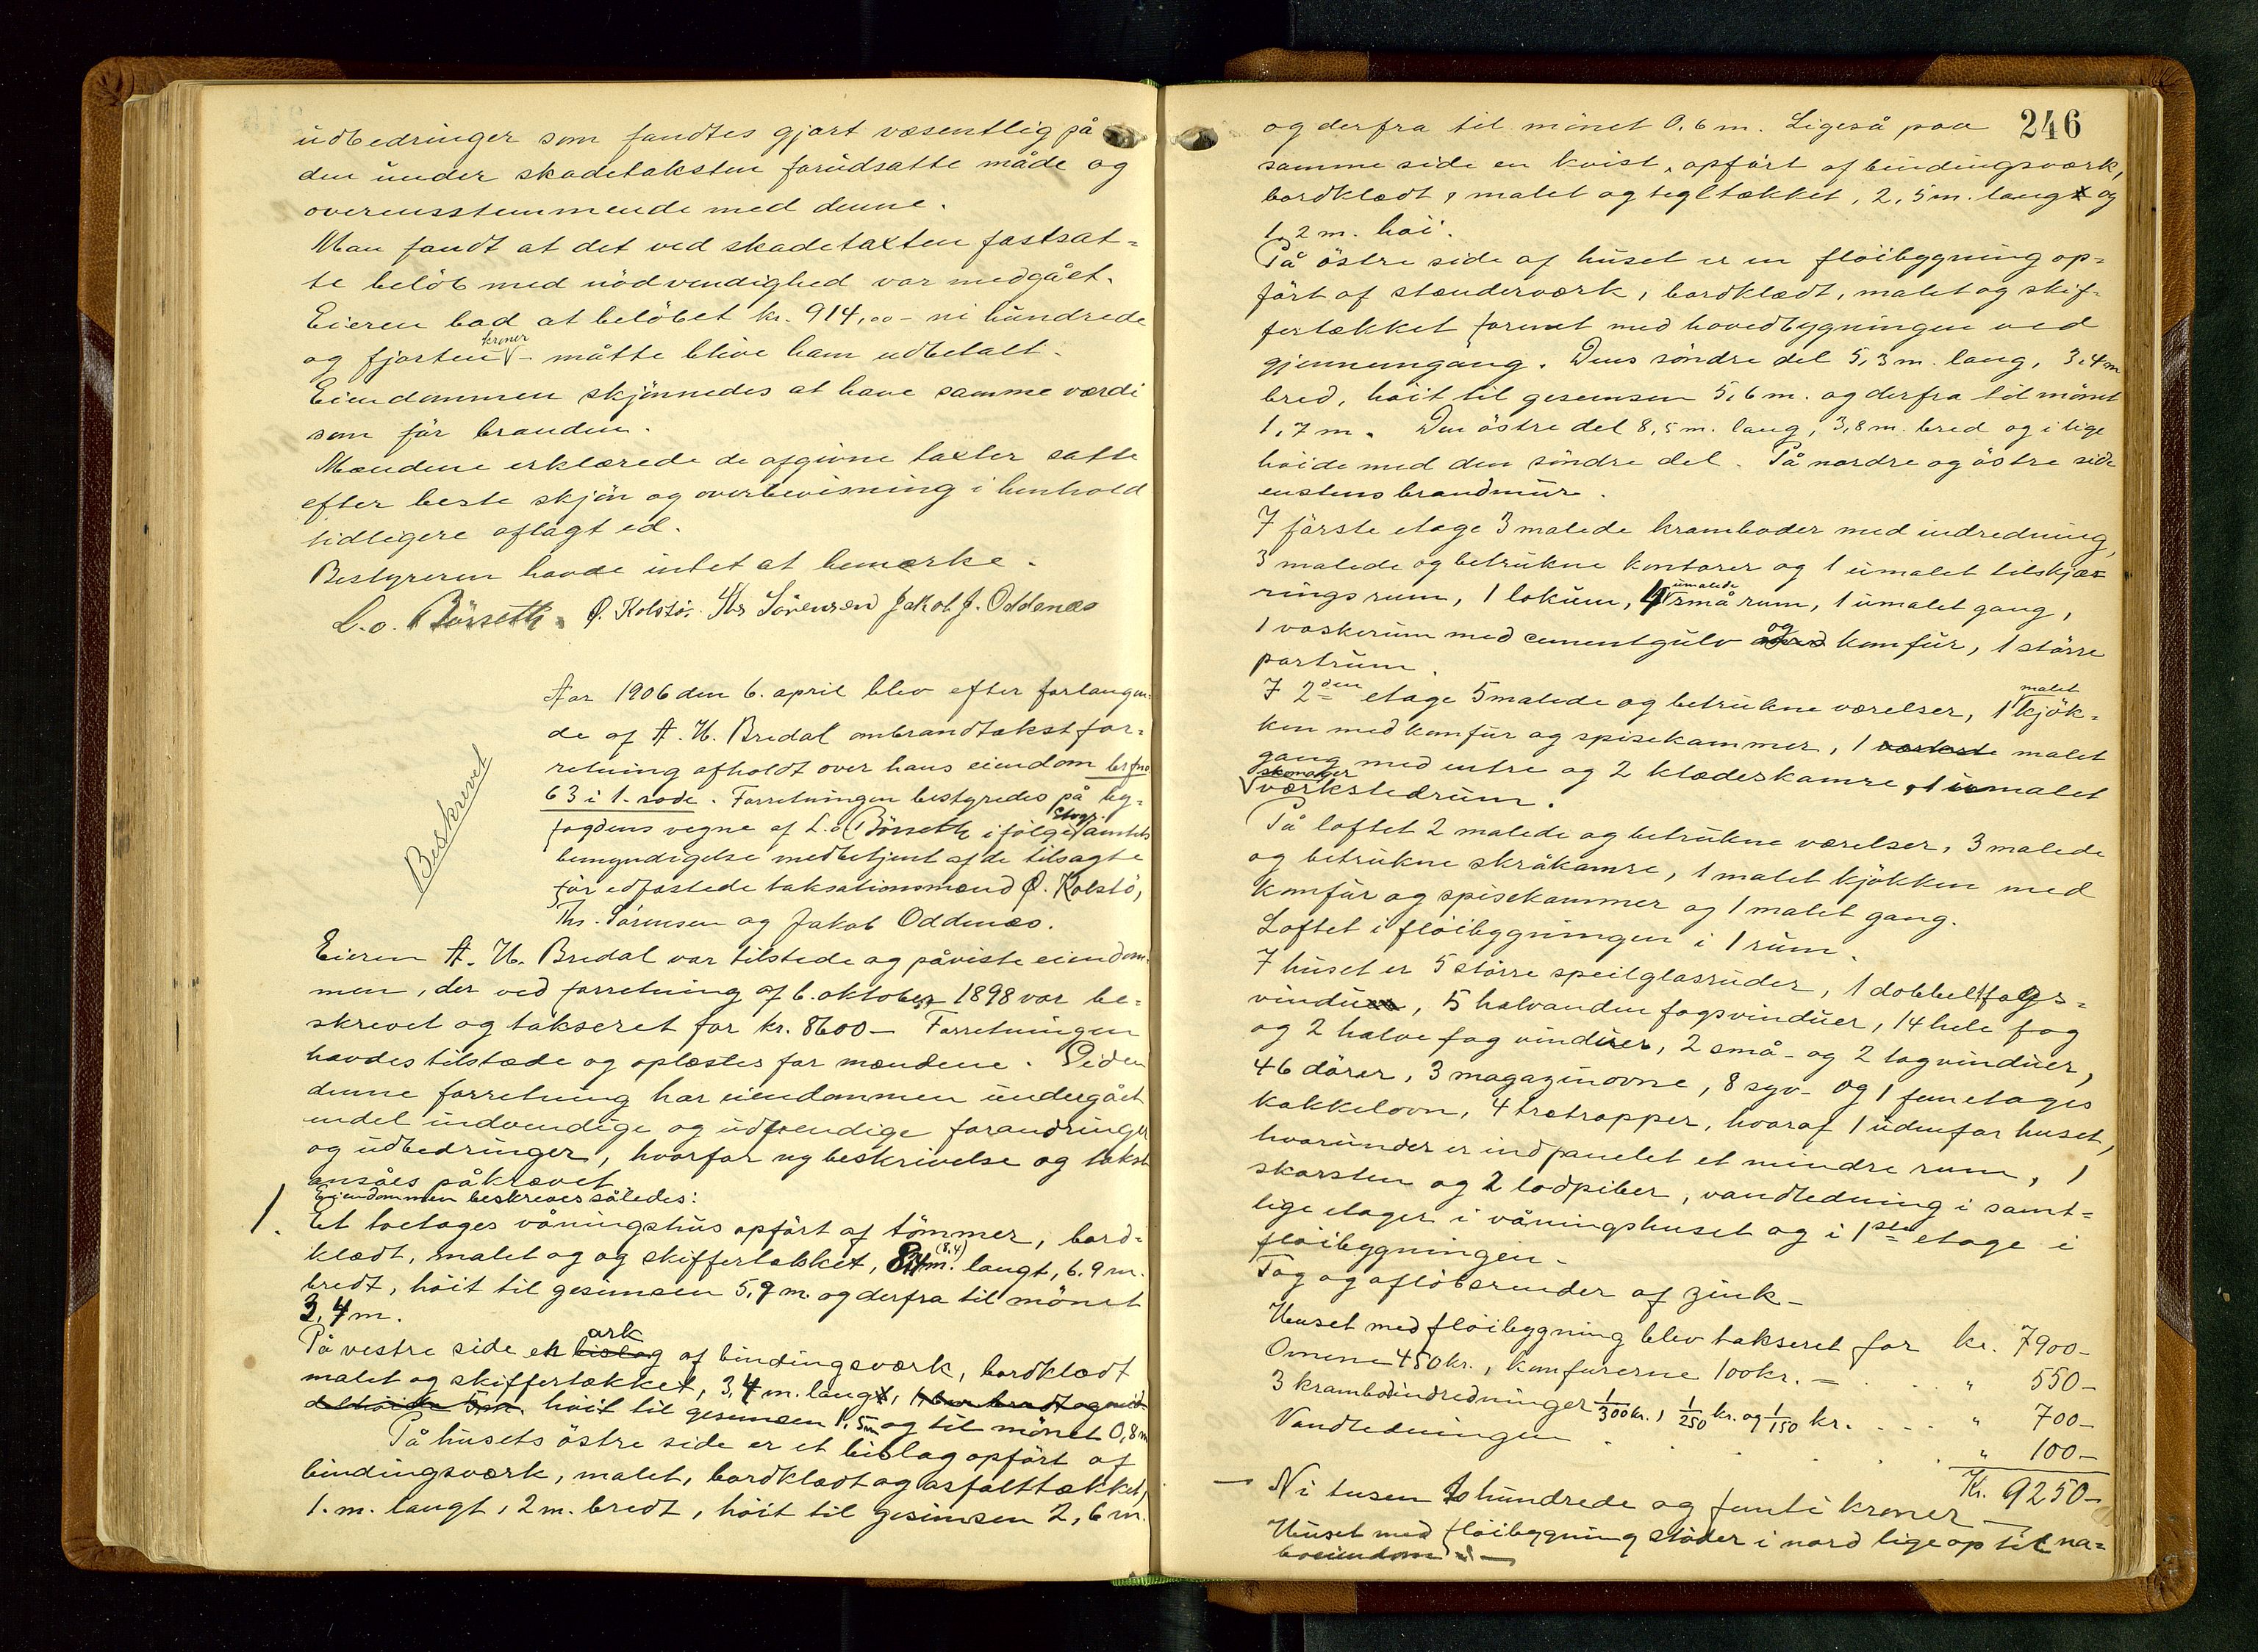 udbedringer som fandtes gjort væsentlig på
den under skadetaksten forudsatte måde og
overensstemmende med denne.
Man fandt at det ved skadetaxten fastsat-
te beløb med nødvendighed var medgået.
Eieren bad at beløbet kr. 914,00 - ni hundrede
og fjorten kroner - måtte blive ham udbetalt.
Eiendommen skjønnedes at have samme værdi
som før branden.
Mændene erklærede de afgivne taxter satte
efter beste skjøn og overbevisning i henhold
tidligere aflagt ed.
Bestyreren havde intet at bemærke.
L. O. Børseth. O. Kolstø. Ths Sørensen Jakob J. Oddenæs
Beskrevet
Aar 1906 den 6. april blev efter forlangen-
de af A. H. Bredal ombrandtakstfor-
retning afholdt over hans eiendom brfno
63 i 1. rode. Forretningen bestyredes på by-
fogdens vegne af L. O. Børseth ifølge Stvgr. amtets
bemyndigelse medbetjent af de tilsagte
før edfæstede taksationsmænd O. Kolstø,
Ths. Sørensen og Jakob Oddenæs.
Eieren A. H. Bredal var tilstede og påviste eiendom-
men, der ved forretning af 6. oktober 1898 var be-
skrevet og takseret for kr. 8600 - Forretningen
havdes tilstæde og oplæstes for mændene. Siden
denne forretning har eiendommen undergået
endel indvendige og udvendige forandringer
og udbedringer, hvorfor ny beskrivelse og takst
ansåes påkrævet
Eiendommen beskrives således:
1. Et toetages våningshus opført af tømmer, bord-
klædt, malet og og skiffertækket, 8,4 m. (8,4) langt, 6.9 m.
bredt, høit til gesimsen 5,9 m. og derfra til mønet
3,4 m.
På vestre side en bislag ark af bindingsværk, bordklædt
malet og skiffertækket, 3,4 m. langt,
høit til gesimsen 1,5 m og til mønet 0,8 m
På husets østre side er et bislag opført af
bindingsværk, malet, bordklædt og asfalttækket,
1. m. langt, 2 m. bredt, høit til gesimsen 2,6 m.
246
og derfra til mønet 0,6 m. Ligeså paa
samme side en kvist, opført af bindingsværk,
bordklædt, malet og tegltækket, 2,5 m. lang og
1,2 m. høi.
På østre side af huset er en fløibygning op-
ført af stænderværk, bordklædt, malet og skif-
fertækket forenet med hovedbygningen ved
gjennemgang. Dens søndre del 5,3 m. lang, 3.4 m
bred, høit til gesemsen 5,6 m. og derfra til mønet
1,7 m. Den østre del 8,5 m. lang, 3,8 m. bred og i lige
høide med den søndre del. På nordre og østre side
enstens brandmur.
I første etage 3 malede kramboder med indredning,
3 malede og betrukne kontorer og 1 umalet tilskjæ-
ringsrum, 1 lokum, 4 umalede små rum, 1 umalet gang,
1 vaskerum med cementgulv og komfur, 1 større
portrum.
I 2den etage 5 malede og betrukne værelser, 1 malet kjøk-
ken med komfur og spisekammer, 1 malet
gang med entre og 2 klædeskamre, 1 umalet
skomagerværkstedrum.
På loftet 2 malede og betrukne værelser, 3 malede
og betrukne skråkamre, 1 malet kjøkken med
komfur og spisekammer og 1 malet gang.
Loftet i fløibygningen i 1 rum.
I huset er 5 større speilglasruder, 1 dobbeltfags-
vindu, 5 halvanden fagsvinduer, 14 hele fag
og 2 halve fag vinduer, 2 små- og 2 tagvinduer,
46 dører, 3 magazinovne, 8 syv- og 1 fem etages
kakkelovn, 4 trætrapper, hvoraf 1 udenfor huset,
hvorunder er indpanelet et mindre rum, 1
skorsten og 2 lodpiber, vandledning i samt-
lige etager i våningshuset og i 1ste etage i
fløibygningen.
Tag og afløbsrender af zink -
Huset med fløibygning blev takseret for kr. 7900 -
Ovnene 450 kr., komfurerne 100 kr. - . . " 550 -
3 krambodindredninger 1/300 kr., 1/250 kr. og 1/150 kr. . . . " 700 -
Vandledningen . . . . " 100 -
Kr. 9250 -
- Ni tusen to hundrede og femti kroner -
Huset med fløibygning støder i nord lige op til na-
boeiendom -